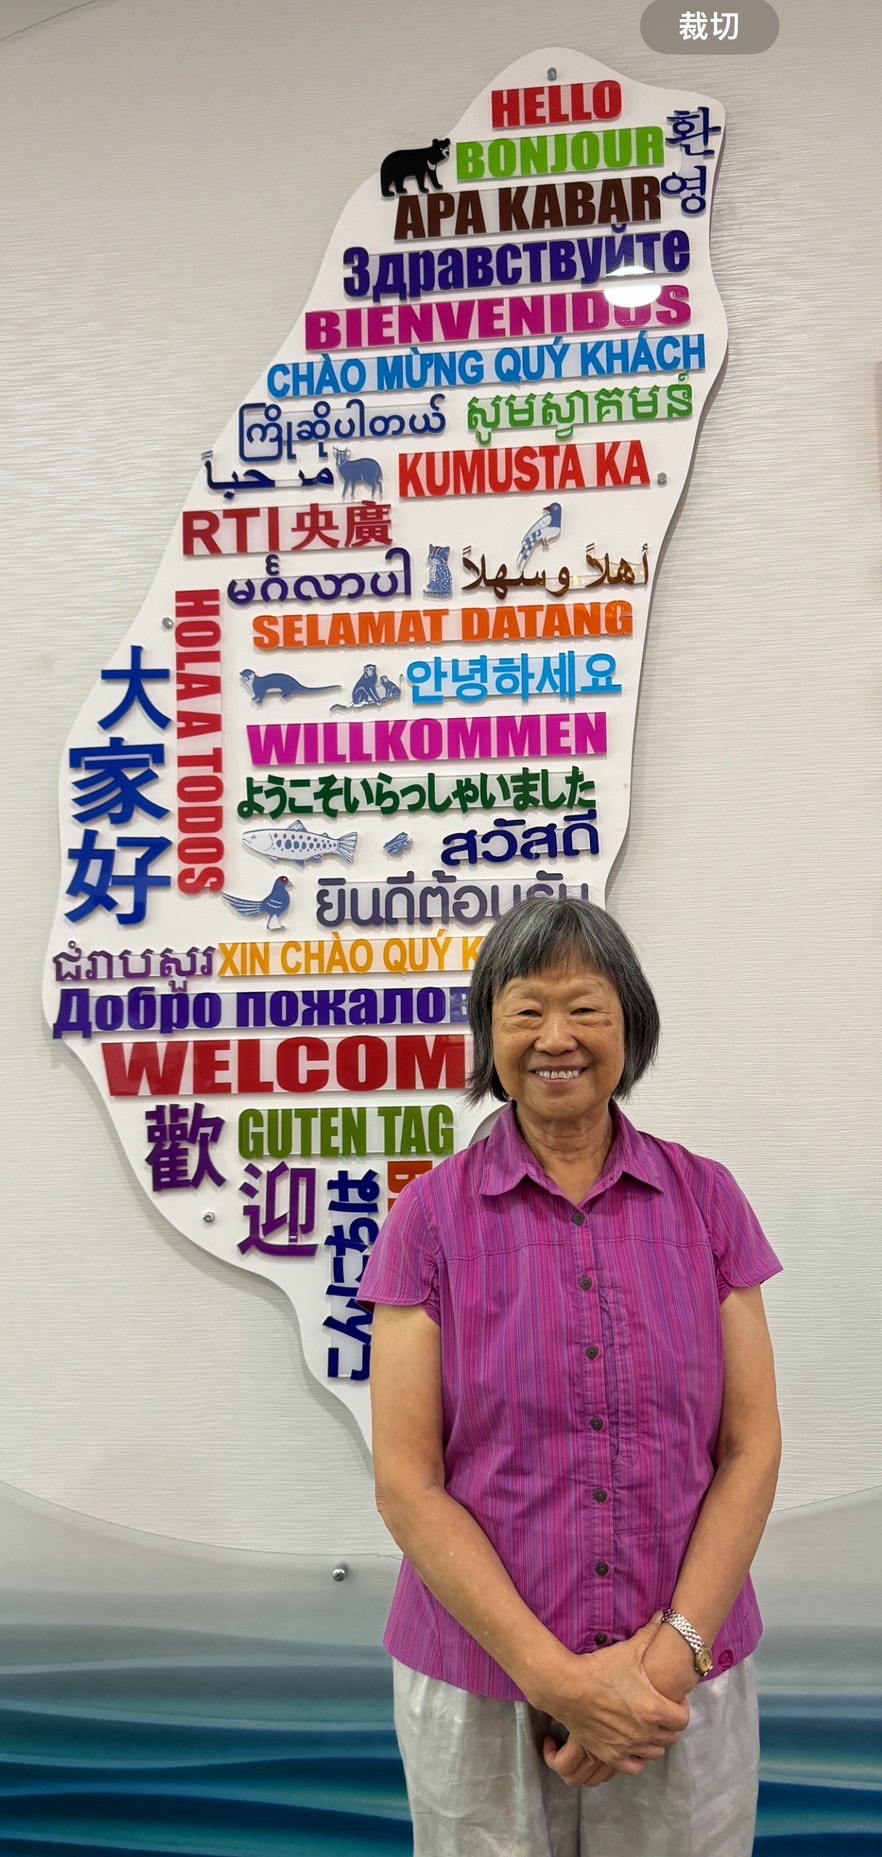 裁切
HELLO
BONJOUR
환영
APA KABAR
Здравствуйте
BIENVENIDOS
CHÀO MỪNG QUÝ KHÁCH
ကြိုဆိုပါတယ်
សូមស្វាគមន៍
مرحباً
KUMUSTA KA
RTI 央廣
မင်္ဂလာပါ
أهلاً وسهلاً
SELAMAT DATANG
HOLA A TODOS
大家好
안녕하세요
WILLKOMMEN
ようこそいらっしゃいました
สวัสดี
ยินดีต้อนรับ
ជំរាបសួរ
XIN CHÀO QUÝ K
Добро пожалов
WELCOM
歡迎
GUTEN TAG
こんにちは